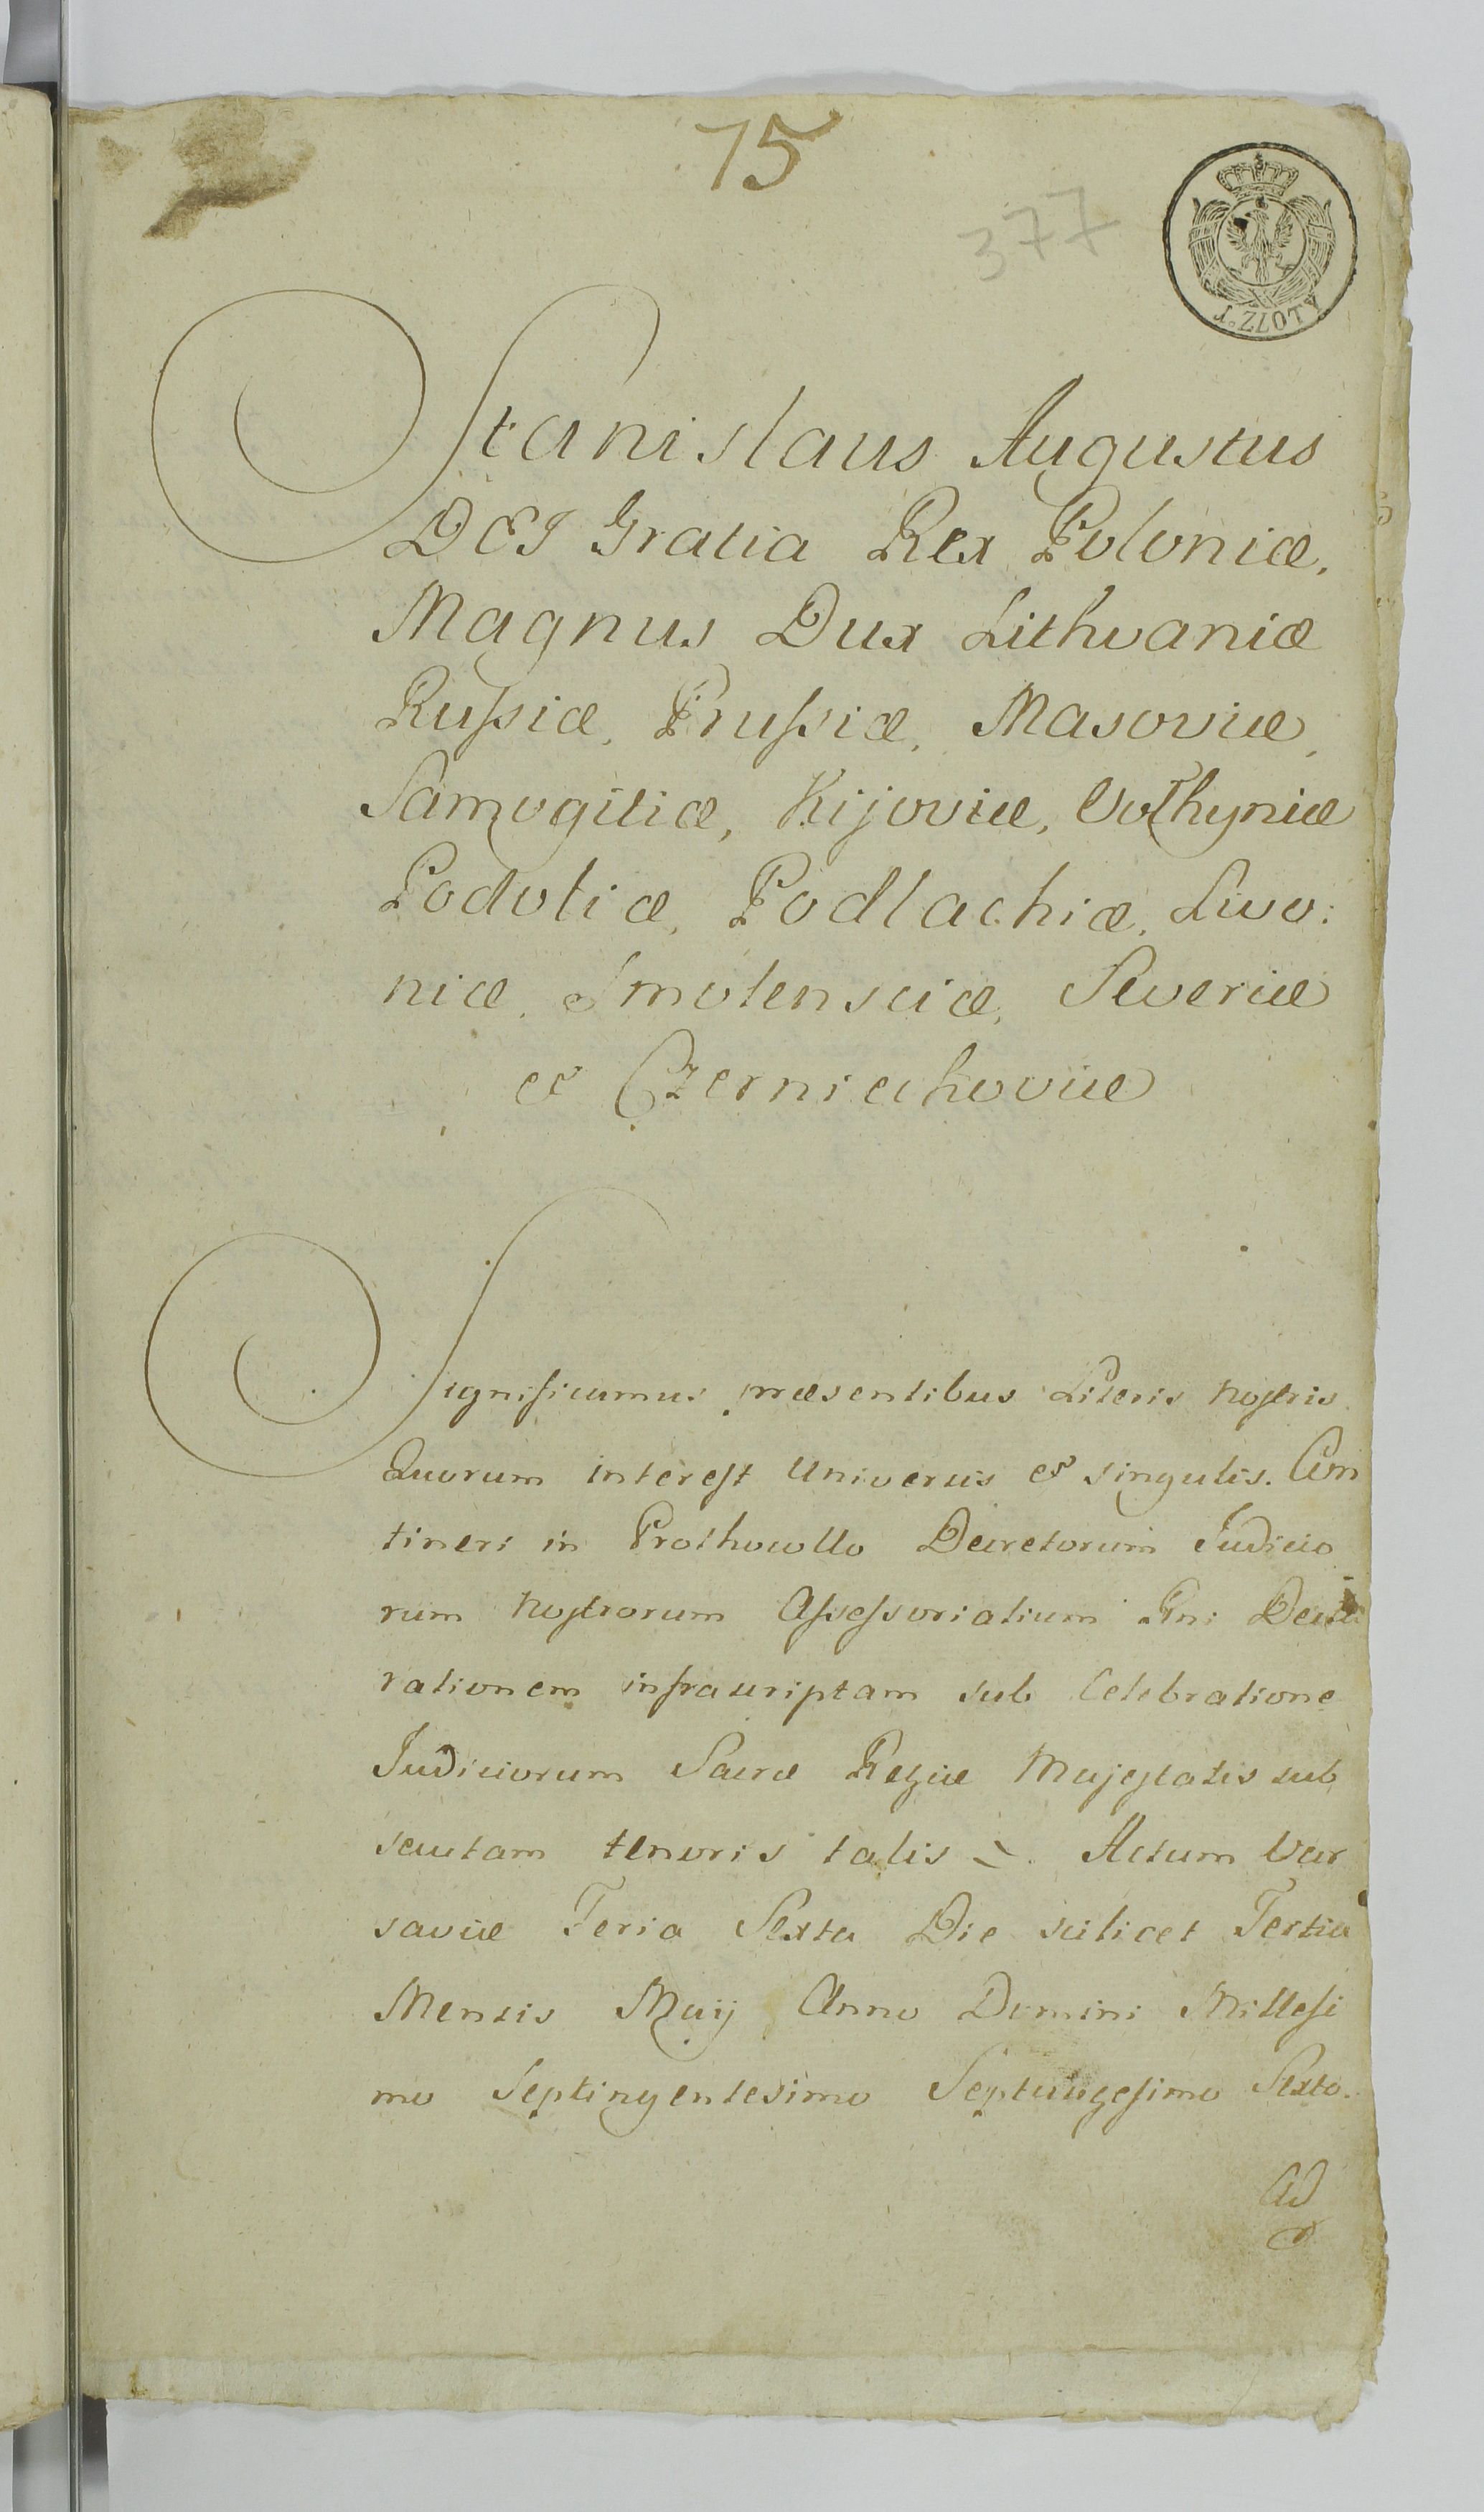 75
377
1. ZŁOTY
Stanislaus Augustus
DEI Gratia Rex Poloniæ,
Magnus Dux Lithvaniæ
Rußiæ, Prußiæ, Masoviæ,
Samogitiæ, Kijoviæ, Volhyniæ
Podoliæ, Podlachiæ, Livo:
niæ, Smolensciæ, Severiæ
et Czerniechoviæ
Significamus præsentibus Literis nostris
Quorum interest Universis et singulis. Con
tineri in Prothocollo Decretorum Judicio
rum nostrorum Assessorialium Rni
rationem infrascriptam sub Celebratione
Judiciorum Sacræ Regiæ Majestatis sub
secutam tenoris talis =. Actum Var
saviæ Feria Sexta Die scilicet Tertia
Mensis Maij Anno Domini Millesi
mo Septingentesimo Septuagesimo Sexto.
Ad